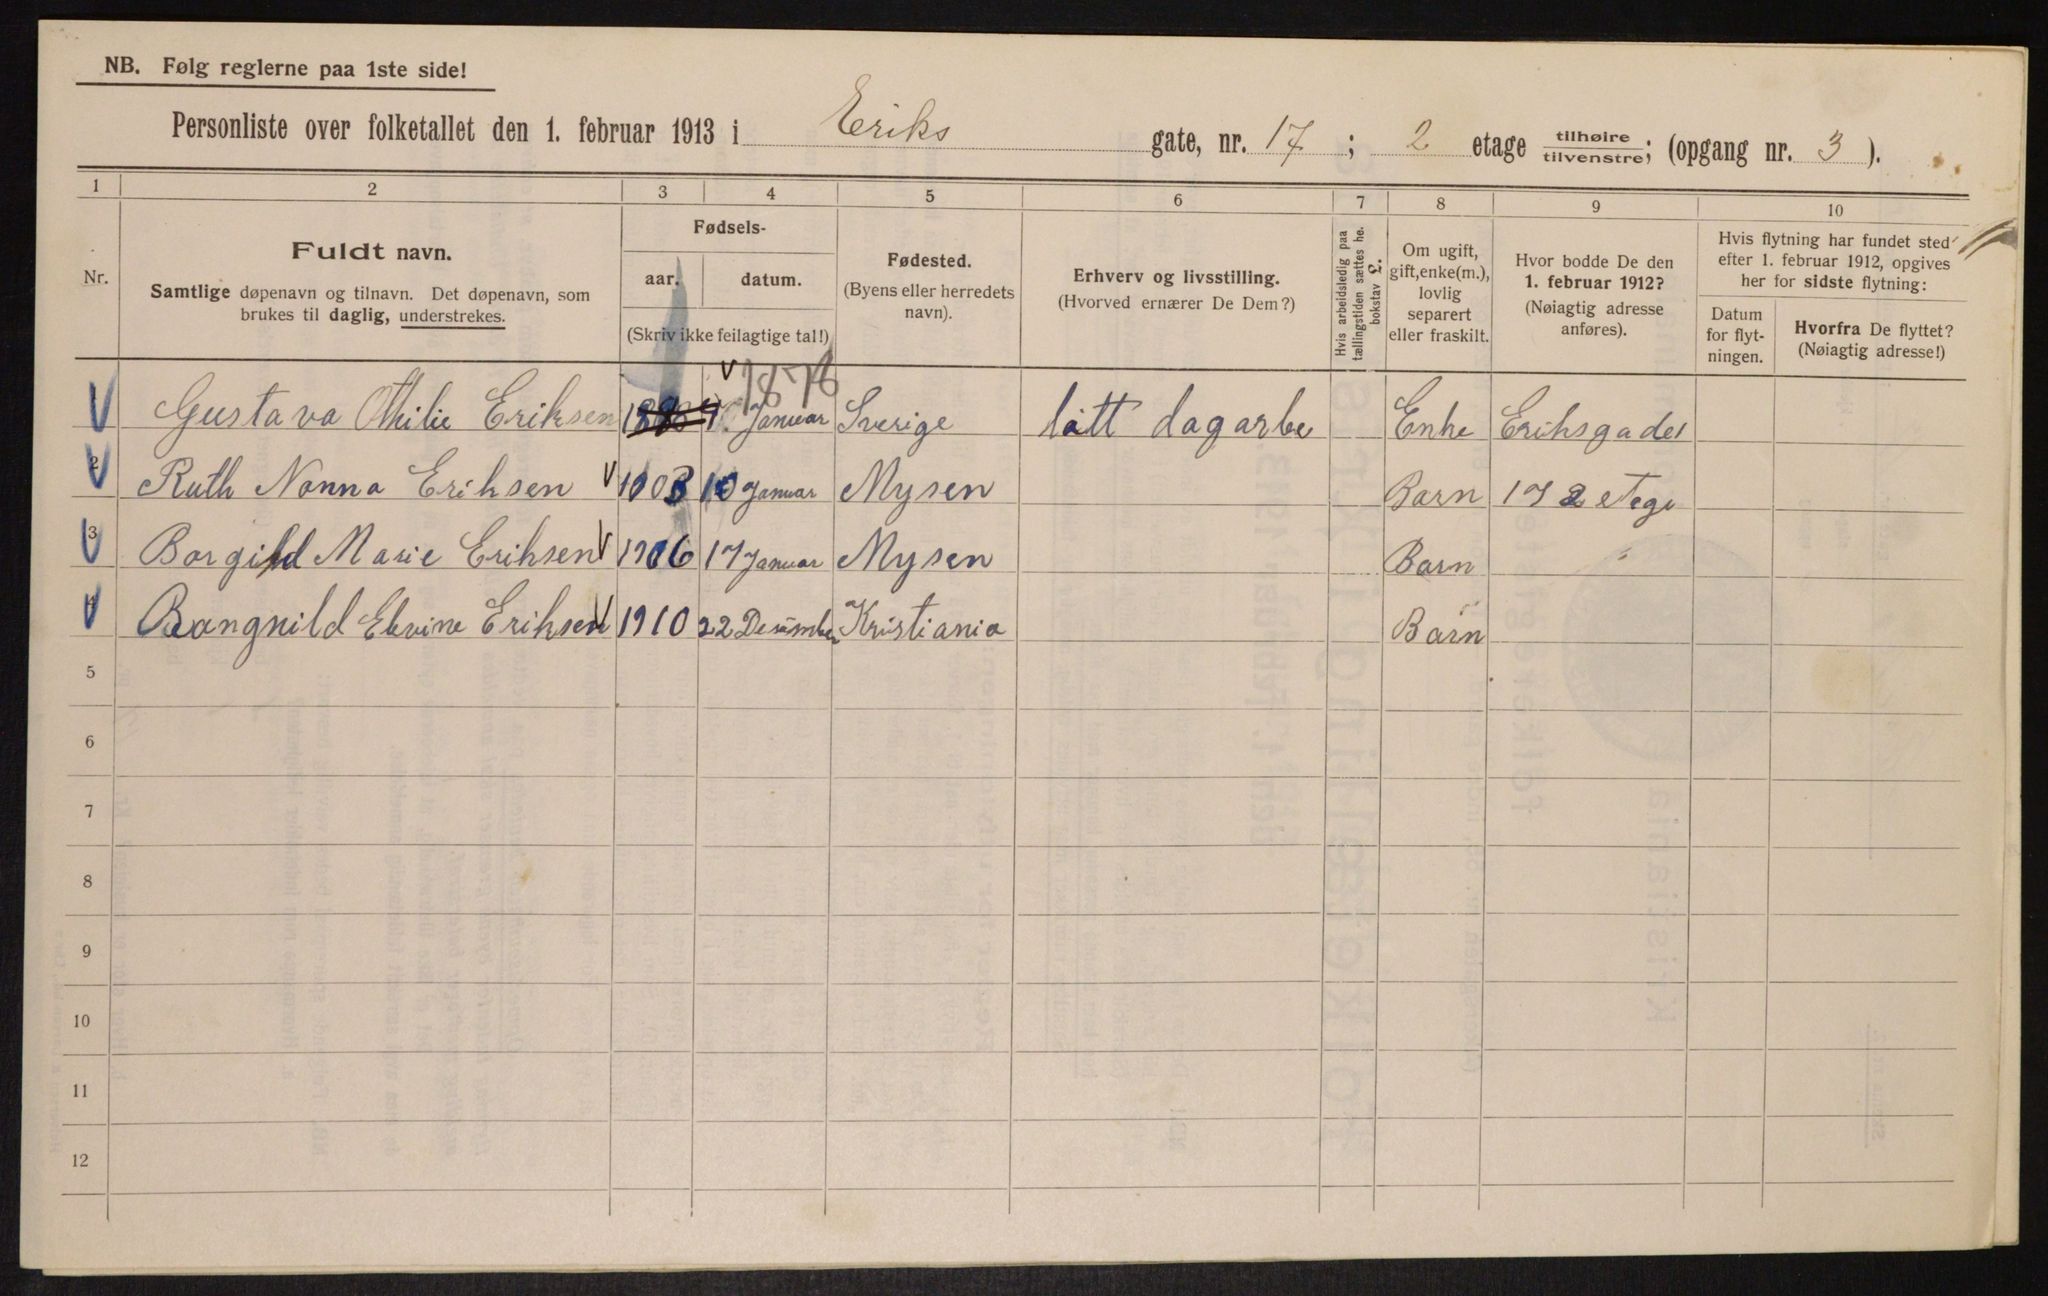 NB. Følg reglerne paa 1ste side!
Personliste over folketallet den 1. februar 1913 i Eriks gate, nr. 17; 2 etage tilhøire/tilvenstre; (opgang nr. 3).
1 2 3 4 5 6 7 8 9 10
Nr.
Fuldt navn.
Samtlige døpenavn og tilnavn. Det døpenavn, som
brukes til daglig, understrekes.
Fødsels-
aar. datum.
(Skriv ikke feilagtige tal!)
Fødested.
(Byens eller herredets
navn).
Erhverv og livsstilling.
(Hvorved ernærer De Dem?)
Hvis arbeidsledig paa
tællingstiden sættes he.
bokstav L.
Om ugift,
gift, enke(m.),
lovlig
separert
eller fraskilt.
Hvor bodde De den
1. februar 1912?
(Nøiagtig adresse
anføres).
Hvis flytning har fundet sted
efter 1. februar 1912, opgives
her for sidste flytning:
Datum
for flyt-
ningen.
Hvorfra De flyttet?
(Nøiagtig adresse!)
1876
Gustava Othilie Eriksen Januar Sverige látt dagarbe Enke Eriksgades
2 Ruth Nanna Eriksen 1903 10 Januar Mysen Barn 17 2 etage
3 Borgild Marie Eriksen 1906 17 Januar Mysen Barn "
4 Eriksen 1910 22 Desember Kristiania Barn
5
6
7
8
9
10
11
12